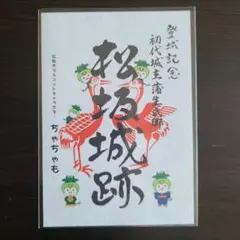 登城記念
初代城主蒲生氏郷
松坂城跡
松阪市マスコットキャラクター
ちゃちゃも